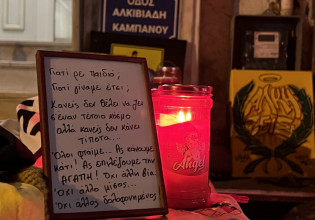 ΟΔΟΣ
ΑΛΚΙΒΙΑΔΗ
ΚΑΜΠΑΝΟΥ
Γιατί ρε παιδιά;
Γιατί γίναμε έτσι;
Κανείς δεν θέλει να ζει
σ'έναν τέτοιο κόσμο
αλλά κανείς δεν κάνει
τίποτα...
Όλοι φταίμε... Ας κάνουμε
κάτι! Ας επιλέξουμε την
ΑΓΑΠΗ! Όχι άλλη βία
Όχι άλλο μίσος...
Όχι άλλος δολοφονημένος
Angel